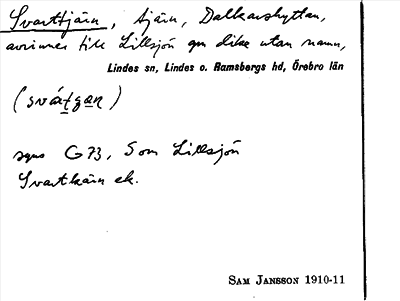 Svarttjärn, tjärn, Dalkarshyttan,
avrinner till Lillsjön gm dike utan namn,
Lindes sn, Lindes o. Ramsbergs hd, Örebro län
(svátɟan)
G 73, Som Lillsjön
Svartkärn ek.
SAM JANSSON 1910-11